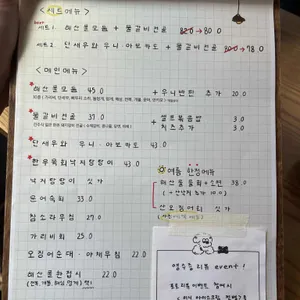 <세트메뉴>
세트1. 해산물모듬 + 물갈비전골 82.0 → 80.0
세트2. 단새우와 우니·아보카도 + 물갈비전골 80.0 → 78.0
<메인메뉴>
해산물모듬 45.0
+ 우니반판 추가 20.0
물갈비전골 37.0
+ 셀프볶음밥 3.0
치즈추가 3.0
단새우와 우니·아보카도 43.0
한우육회낙지탕탕이 43.0
낙지탕탕이 싯가
문어숙회 33.0
참소라무침 27.0
가리비회 25.0
오징어순대·야채무침 22.0
해산물한접시 22.0
여름 한정메뉴
해산물물회+소면 38.0
(+산낙지 추가 10.0)
산오징어회 싯가
영수증리뷰 event!
포토리뷰 이벤트 참여시